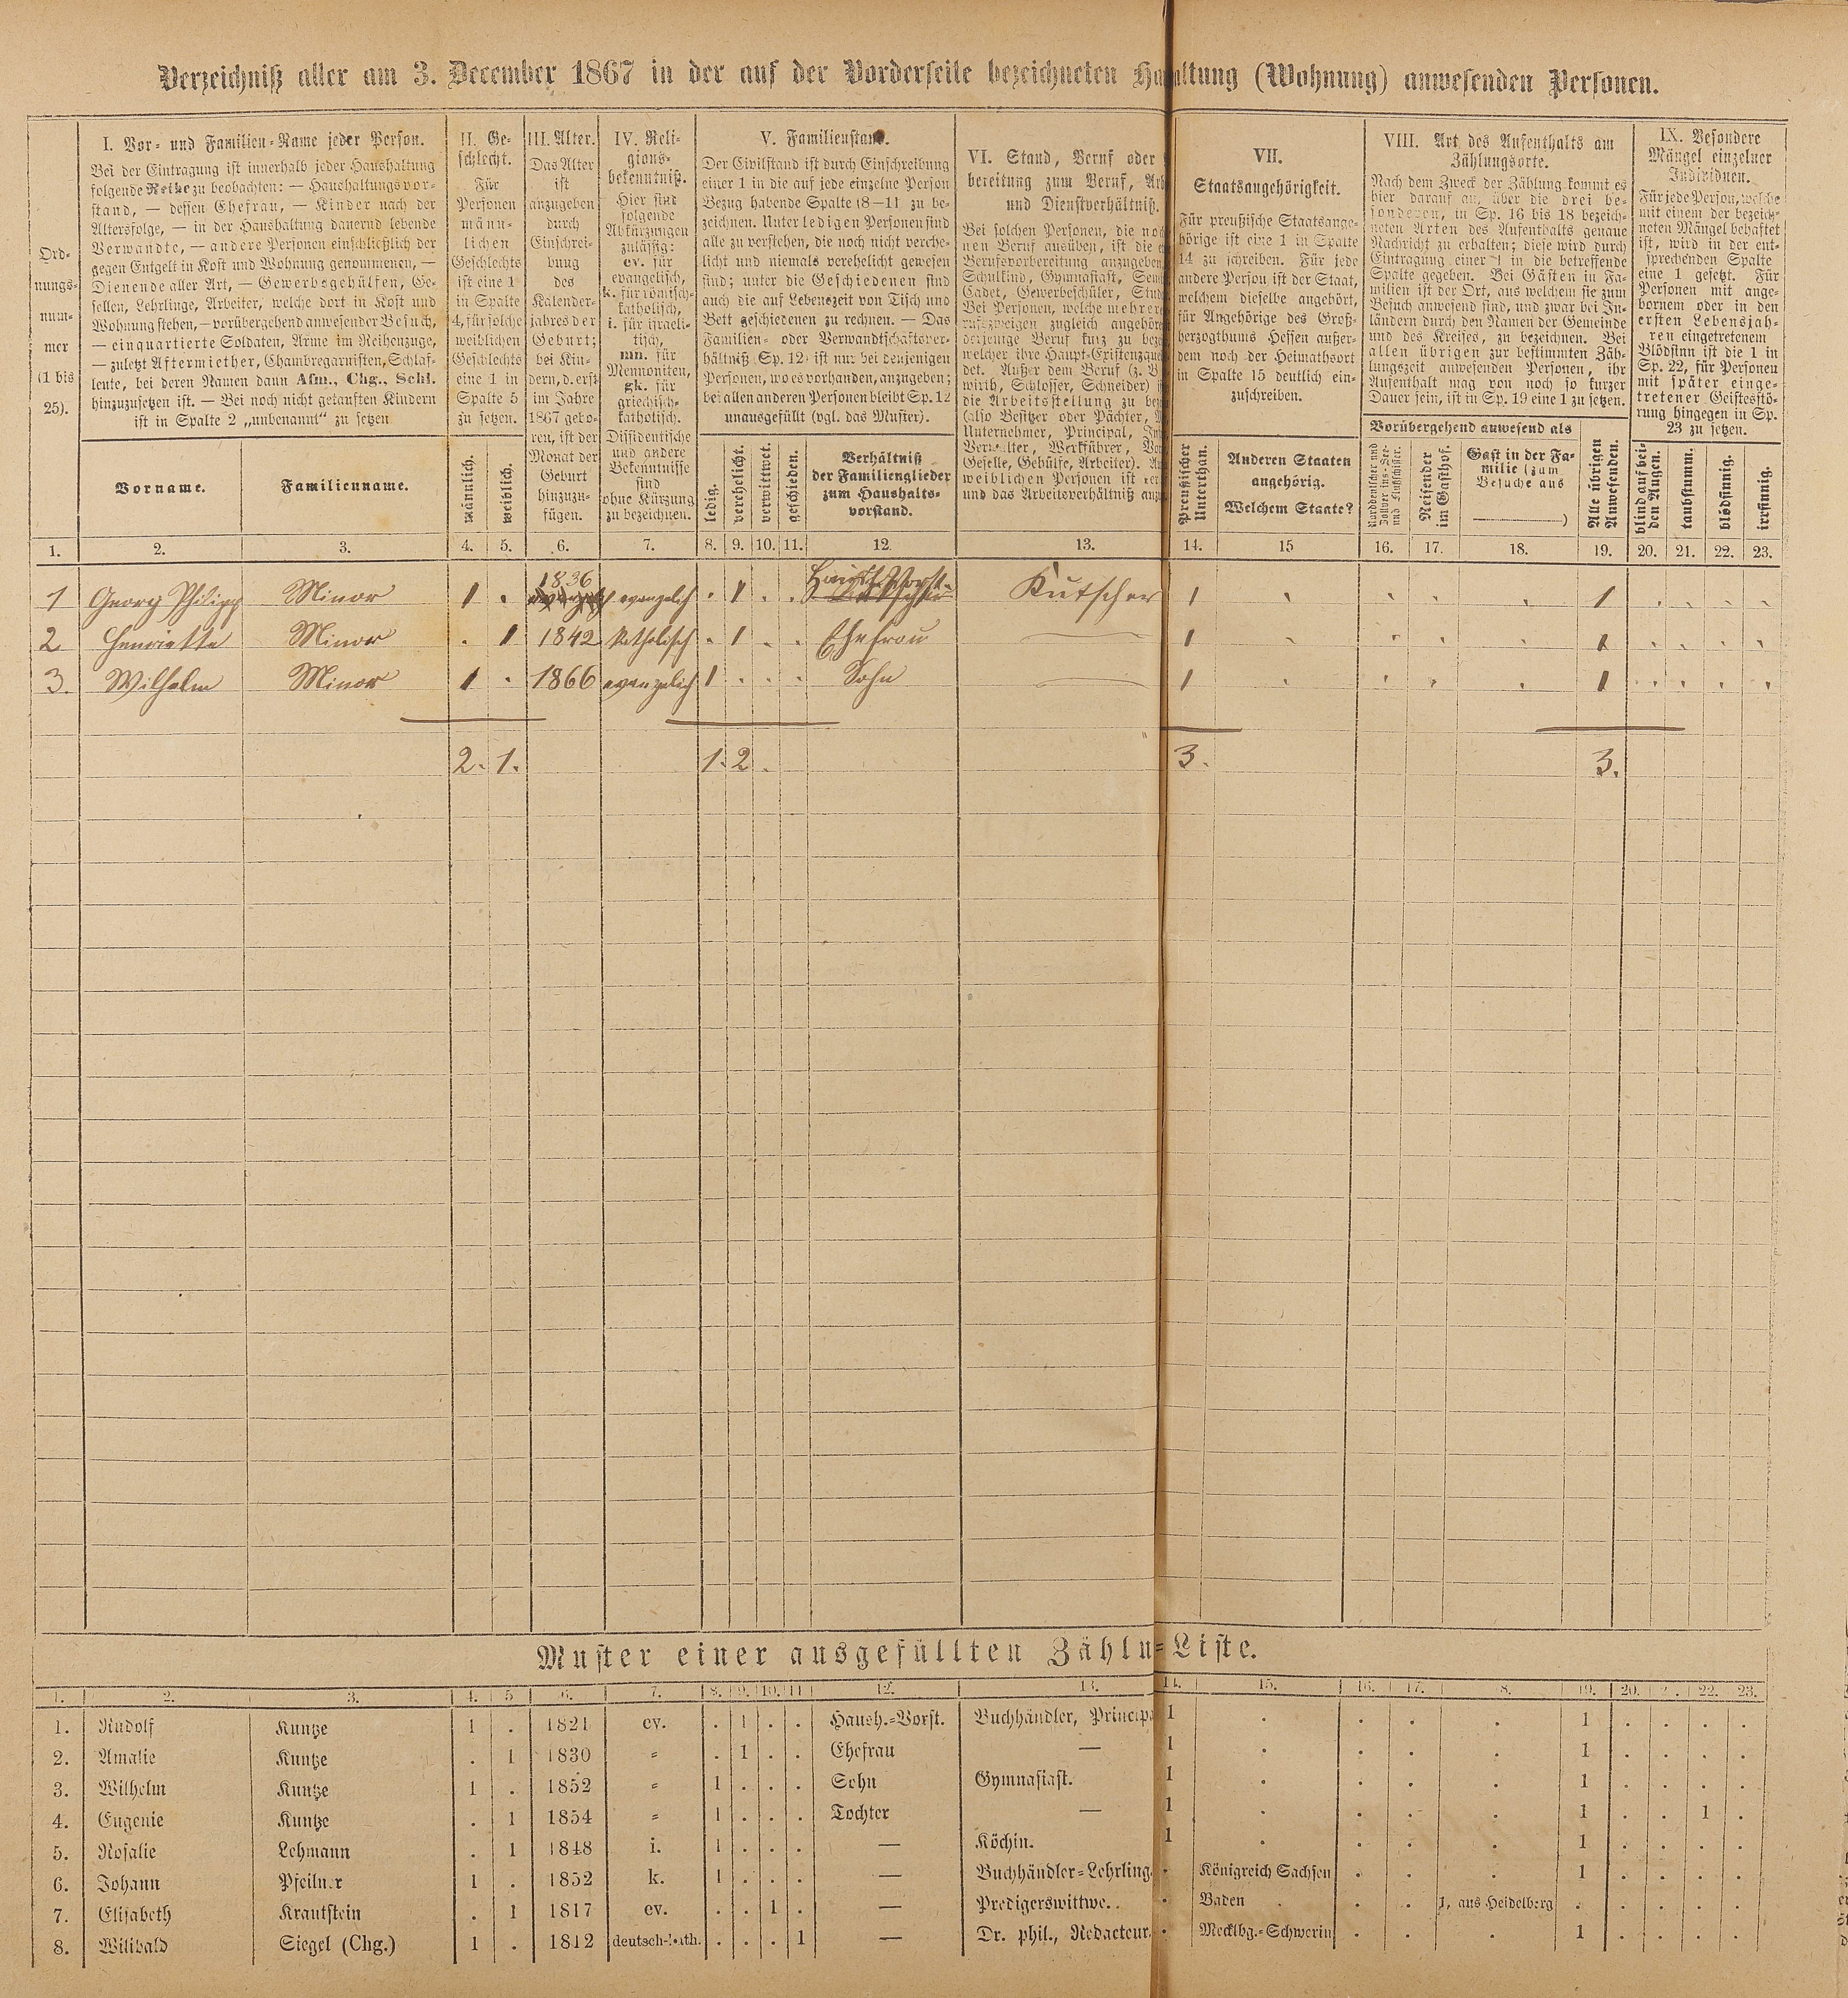 Verzeichniß aller am 3. December 1867 in der auf der Vorderseite bezeichneten Haushaltung (Wohnung) anwesenden Personen.
Ord-
nungs-
num-
mer
(1 bis
25).
I. Vor- und Familien-Name jeder Person.
Bei der Eintragung ist innerhalb jeder Haushaltung
folgende Reihe zu beobachten: — Haushaltungsvor-
stand, — dessen Ehefrau, — Kinder nach der
Altersfolge, — in der Haushaltung dauernd lebende
Verwandte, — andere Personen einschließlich der
gegen Entgelt in Kost und Wohnung genommenen, —
Dienende aller Art, — Gewerbegehülfen, Ge-
sellen, Lehrlinge, Arbeiter, welche dort in Kost und
Wohnung stehen, — vorübergehend anwesender Besuch,
— einquartierte Soldaten, Arme im Reihenzuge,
— zuletzt Aftermiether, Chambregarnisten, Schlaf-
leute, bei deren Namen dann Afm., Chg., Schl.
hinzuzusetzen ist. — Bei noch nicht getauften Kindern
ist in Spalte 2 „unbenannt“ zu setzen
Vorname.
Familienname.
II. Ge-
schlecht.
Für
Personen
männ-
lichen
Geschlechts
ist eine 1
in Spalte
4, für solche
weiblichen
Geschlechts
eine 1 in
Spalte 5
zu setzen.
männlich.
weiblich.
III. Alter.
Das Alter
ist
anzugeben
durch
Einschrei-
bung
des
Kalender-
jahres der
Geburt;
bei Kin-
dern, d. erst
im Jahre
1867 gebo-
ren, ist der
Monat der
Geburt
hinzuzu-
fügen.
IV. Reli-
gions-
bekenntniß.
Hier sind
folgende
Abkürzungen
zulässig:
ev. für
evangelisch,
k. für römisch-
katholisch,
i. für israeli-
tisch,
mn. für
Mennoniten,
gk. für
griechisch-
katholisch.
Dissidentische
und andere
Bekenntnisse
sind
ohne Kürzung
zu bezeichnen.
V. Familienstand.
Der Civilstand ist durch Einschreibung
einer 1 in die auf jede einzelne Person
Bezug habende Spalte (8—11) zu be-
zeichnen. Unter ledigen Personen sind
alle zu verstehen, die noch nicht verehe-
licht und niemals verehelicht gewesen
sind; unter die Geschiedenen sind
auch die auf Lebenszeit von Tisch und
Bett geschiedenen zu rechnen. — Das
Familien- oder Verwandtschaftsver-
hältniß Sp. 12) ist nur bei denjenigen
Personen, wo es vorhanden, anzugeben;
bei allen anderen Personen bleibt Sp. 12
unausgefüllt (vgl. das Muster).
ledig.
verehelicht.
verwittwet.
geschieden.
Verhältniß
der Familienglieder
zum Haushalts-
vorstand.
VI. Stand, Beruf oder
bereitung zum Beruf,
und Dienstverhältniß.
Bei solchen Personen, die
nen Beruf ausüben, ist die
Berufsvorbereitung
Schulkind, Gymnasiast,
Cadet, Gewerbeschüler,
Bei Personen, welche
rufszweigen zugleich
derjenige Beruf kurz zu
welcher ihre
det. Außer dem Beruf (z. B.
wirth, Schlosser, Schneider)
die Arbeitsstellung zu
(also Besitzer oder Pächter,
Unternehmer, Principal,
Verwalter, Werkführer,
Geselle, Gehülfe, Arbeiter).
weiblichen Personen ist
und das Arbeitsverhältniß
VII.
Staatsangehörigkeit.
Für preußische Staatsange-
hörige ist eine 1 in Spalte
14 zu schreiben. Für jede
andere Person ist der Staat,
welchem dieselbe angehört,
für Angehörige des Groß-
herzogthums Hessen außer-
dem noch der Heimathsort
in Spalte 15 deutlich ein-
zuschreiben.
Preußischer
Unterthan.
Anderen Staaten
angehörig.
Welchem Staate?
VIII. Art des Aufenthalts am
Zählungsorte.
Nach dem Zweck der Zählung kommt es
hier darauf an, über die drei be-
sonderen, in Sp. 16 bis 18 bezeich-
neten Arten des Aufenthalts genaue
Nachricht zu erhalten; diese wird durch
Eintragung einer 1 in die betreffende
Spalte gegeben. Bei Gästen in Fa-
milien ist der Ort, aus welchem sie zum
Besuch anwesend sind, und zwar bei In-
ländern durch den Namen der Gemeinde
und des Kreises, zu bezeichnen. Bei
allen übrigen zur bestimmten Zäh-
lungszeit anwesenden Personen, ihr
Aufenthalt mag von noch so kurzer
Dauer sein, ist in Sp. 19 eine 1 zu setzen.
Vorübergehend anwesend als
Norddeutscher und
Zollver ins-See-
und Flußschiffer.
Reisender
im Gasthof.
Gast in der Fa-
milie (zum
Besuche aus
)
Alle übrigen
Anwesenden.
IX. Besondere
Mängel einzelner
Individuen.
Für jede Person, welche
mit einem der bezeich-
neten Mängel behaftet
ist, wird in der ent-
sprechenden Spalte
eine 1 gesetzt. Für
Personen mit ange-
bornem oder in den
ersten Lebensjah-
ren eingetretenem
Blödsinn ist die 1 in
Sp. 22, für Personen
mit später einge-
tretener Geistesstö-
rung hingegen in Sp.
23 zu setzen.
blind auf bei-
den Augen.
taubstumm.
blödsinnig.
irrsinnig.
1. 2. 3. 4. 5. 6. 7. 8. 9. 10. 11. 12. 13. 14. 15 16. 17. 18. 19. 20. 21. 22. 23.
1 Georg Philipp Minor 1 . 1836 evangelisch . 1 . . Haush. Vorst. Kutscher 1 1
2 Henriette Minor . 1 1842 katholisch . 1 . . Ehefrau — 1 1
3. Wilhelm Minor 1 . 1866 evangelisch 1 . . . Sohn — 1 1
2. 1. 1. 2 . 3. 3.
Muster einer ausgefüllten Zählu=Liste.
1. 2. 3. 4. 5 6. 7. 8. 9. 10. 11 12. 13. 14. 15. 16. 17. 8. 19. 20. 22. 23.
1. Rudolf Kuntze 1 . 1821 ev. . 1 . . Haush.=Vorst. Buchhändler, 1 . . . . 1 . . . .
2. Amalie Kuntze . 1 1830 = . 1 . . Ehefrau — 1 . . . . 1 . . . .
3. Wilhelm Kuntze 1 . 1852 = 1 . . . Sohn Gymnasiast. 1 . . . . 1 . . . .
4. Eugenie Kuntze . 1 1854 = 1 . . . Tochter — 1 . . . . 1 . . 1 .
5. Rosalie Lehmann . 1 1848 i. 1 . . . — Köchin. 1 . . . . 1 . . . .
6. Johann Pfeilner 1 . 1852 k. 1 . . . — Buchhändler=Lehrling. . Königreich Sachsen . . . 1 . . . .
7. Elisabeth Krautstein . 1 1817 ev. . . 1 . — Predigerswittwe. . Baden . . 1, aus Heidelberg . . . . .
8. Wilibald Siegel (Chg.) 1 . 1812 deutsch-kath. . . . 1 — Dr. phil., Redacteur. . Mecklbg.=Schwerin . . . 1 . . . .